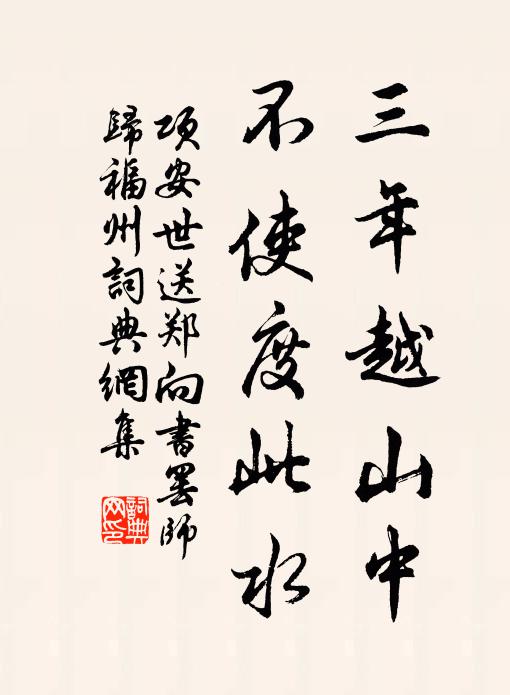 三年越山中
不使度此水
项安世送郑向书罢师
歸福州詞典網集
詞典網印